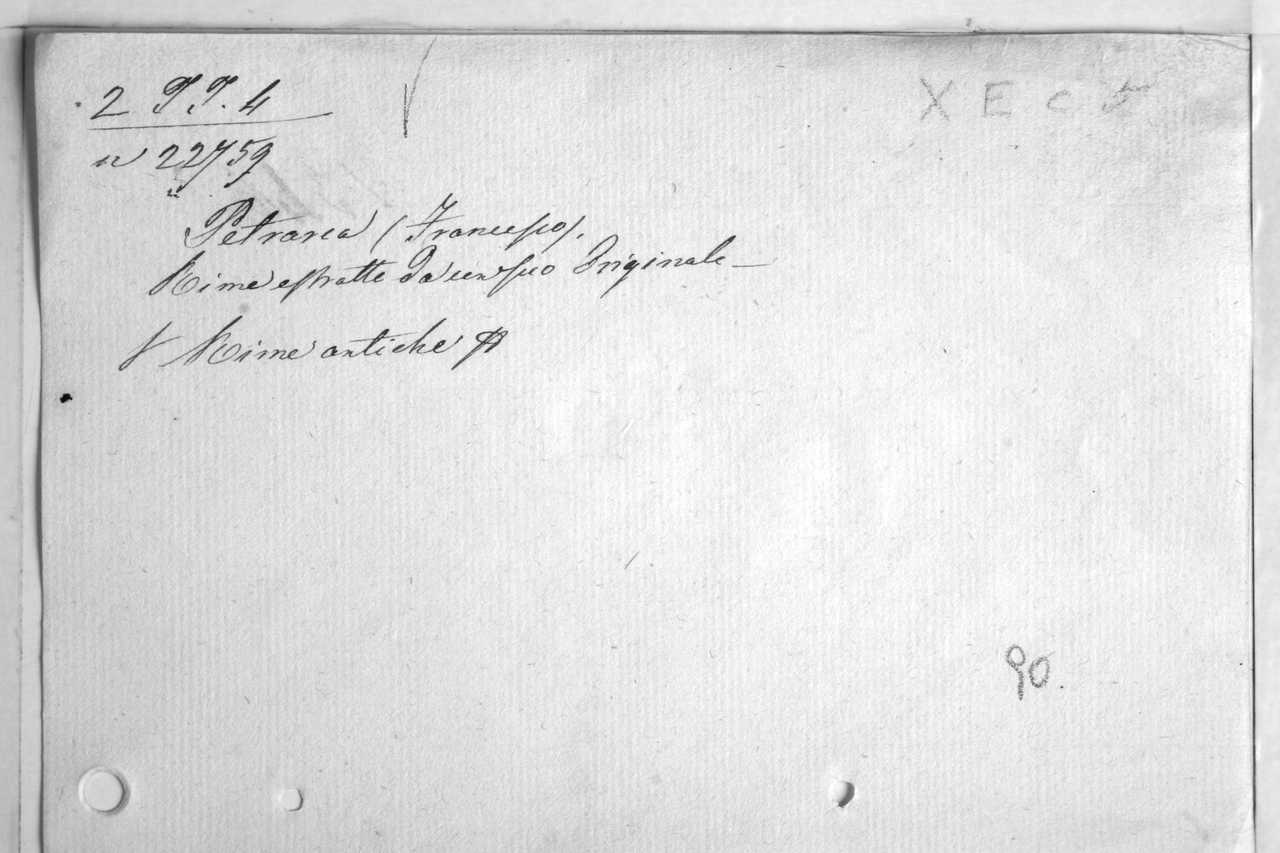 2 T T. 4
XEC
n 22759
Petrarca (Francesco).
Rime estratte da un suo Originale —
Rime antiche
90